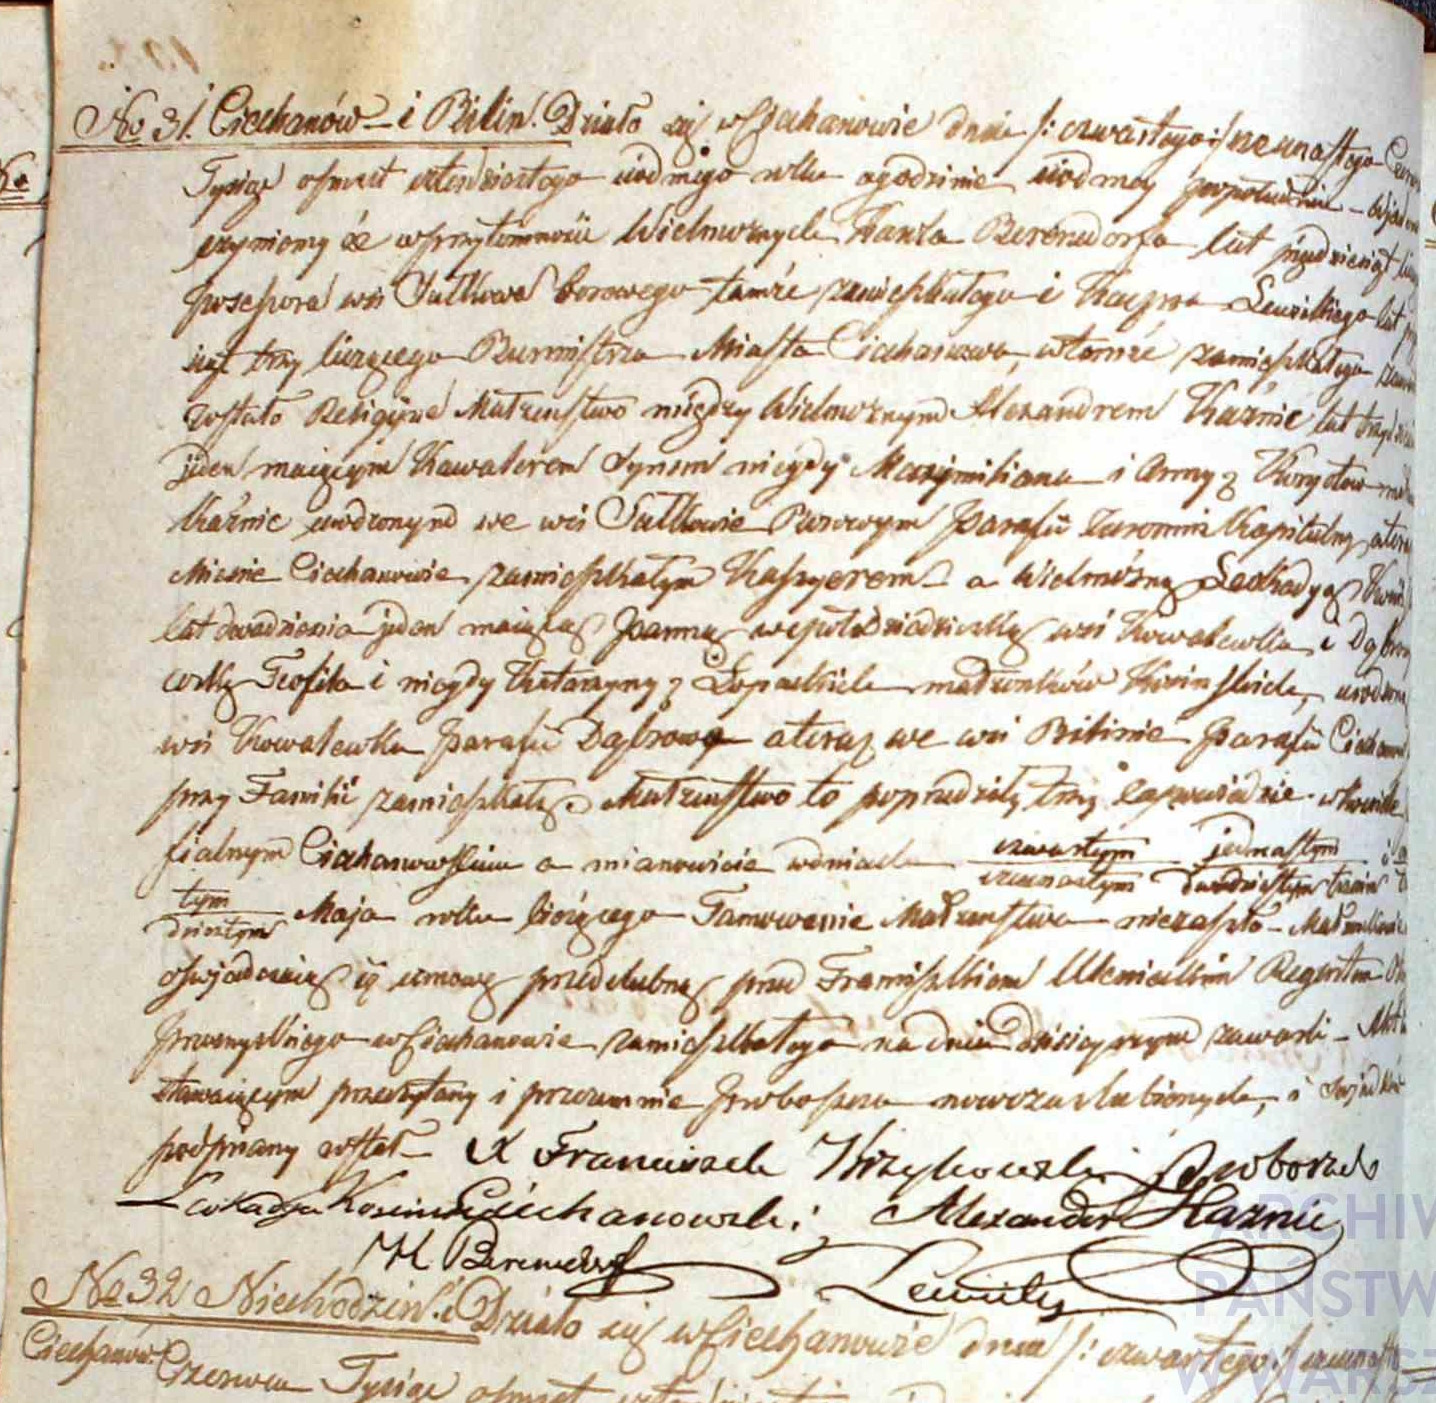 No 31. Ciechanów i Bilin. Działo się w Ciechanowie dnia /: czwartego :/ szesnastego Czerw
Tysiąc ośmset czterdziestego siódmego roku o godzinie siódmey popołudniu – Wiadomo
czyniemy że w przytomności Wielmożnych Karola Berendorfa lat pięćdziesiąt licz
Possesora wsi Sułkowa borowego tamże zamieszkałego i Lewickiego lat
siąt trzy liczącego Burmistrza Miasta Ciechanowa, w temże zamieszkałego
zostało Religijne Małżeństwo między Wielmożnym Alexandrem Kaźnic lat trzydzieści
jeden maiącym Kawalerem Synem niegdy Maxymiliana i Anny z
Kaźnic urodzonym we wsi Sułkowie Borowym Parafii Żuromin Kapitulny, a teraz
Mieście Ciechanowie zamieszkałym Kassyerem – a Wielmożną Leokadyą
lat dwadzieścia jeden maiącą Panną współdziedziczką wsi Kowalewka i Dąbrow
córką Teofila i niegdy Katarzyny z Łopackich małżonków Kosinskich, urodzoną
wsi Kowalewku Parafii Dąbrowa a teraz we wsi Bilinie Parafii Ciechanow
przy Familii zamieszkałą. Małżeństwo to poprzedziły trzy zapowiedzie w kościele
fialnym Ciechanowskim a mianowicie w dniach czwartym jedenastym i
szesnastym dwudziestym trzecim
tym
dziestym Maja roku bieżącego Tamowanie Małżeństwa niezaszło – Małżonkowie
oświadczaią iż umowę przedślubną przed Franciszkiem Regentem
Przasnyskiego w Ciechanowie zamieszkałego na dniu dzisieyszym zawarli – Akt
stawaiącym przeczytany i przezemnie Proboszcza nowozaślubionych, i świadków
podpisany został – X Franciszek Krzykowski Proboszcz
Leokadja Kosinska Ciechanowski; Alexander Kaznic
K Berendorff Lewicky
No 32 Niechodzin i Działo się w Ciechanowie dnia /: czwartego :/ szesnast
Ciechanów. Czerwca Tysiąc ośmset
ARCHIW
PAŃSTW
W WARSZ